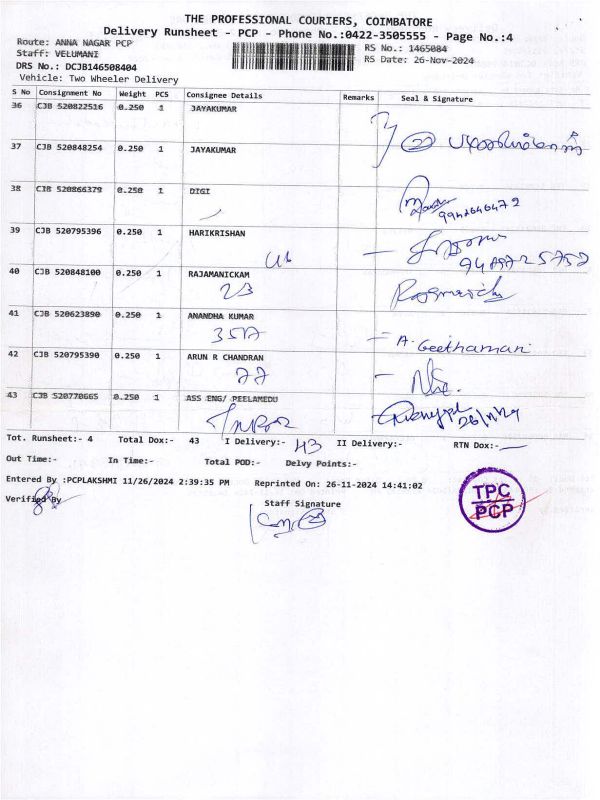 THE PROFESSIONAL COURIERS, COIMBATORE
Delivery Runsheet - PCP - Phone No.:0422-3505555 - Page No.:4
Route: ANNA NAGAR PCP
RS No.: 1465084
Staff: VELUMANI
RS Date: 26-Nov-2024
DRS No.: DCJB146508404
Vehicle: Two Wheeler Delivery
S No Consignment No Weight PCS Consignee Details Remarks Seal & Signature
36 CJB 520822516 0.250 1 JAYAKUMAR
37 CJB 520848254 0.250 1 JAYAKUMAR
38 CJB 520866379 0.250 1 DIGI
9942646472
39 CJB 520795396 0.250 1 HARIKRISHAN
9489725752
40 CJB 520848100 0.250 1 RAJAMANICKAM
23
41 CJB 520623890 0.250 1 ANANDHA KUMAR
35A A. Geethamani
42 CJB 520795390 0.250 1 ARUN R CHANDRAN
77
43 CJB 520770665 0.250 1 ASS ENG/ PEELAMEDU
26/11/24
Tot. Runsheet:- 4 Total Dox:- 43 I Delivery:- 43 II Delivery:- RTN Dox:-
Out Time:- In Time:- Total POD:- Delvy Points:-
Entered By :PCPLAKSHMI 11/26/2024 2:39:35 PM Reprinted On: 26-11-2024 14:41:02
Verified By
Staff Signature
TPC
PCP